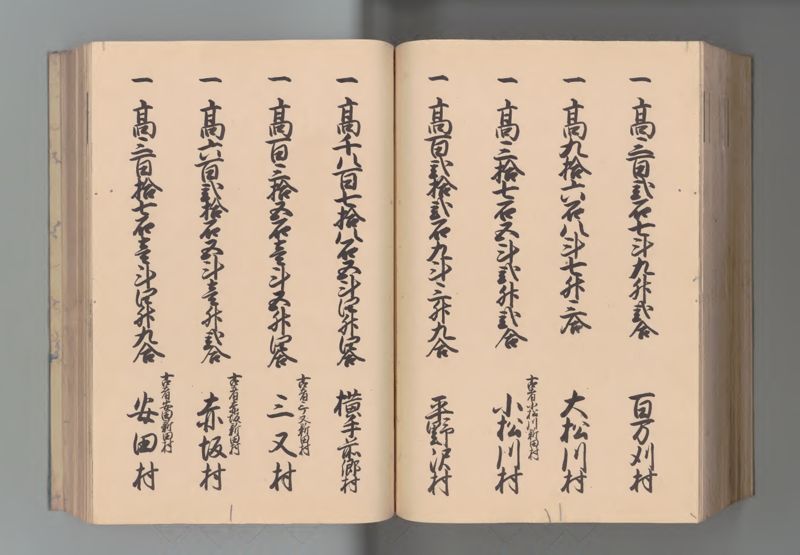 一 高三百弐石七斗九升弐合 百万刈村
一 高九拾六石八斗七升三合 大松川村
一 高三拾七石五斗弐升弐合 古者小松川新田村 小松川村
一 高百弐拾弐石九斗三升九合 平野沢村
一 高千八百七拾八石五斗四升四合 横手前郷村
一 高百三拾五石壱斗五升四合 古者三又新田村 三又村
一 高六百弐拾石五斗壱升弐合 古者赤坂新田村 赤坂村
一 高三百拾七石壱斗四升九合 古者安田新田村 安田村